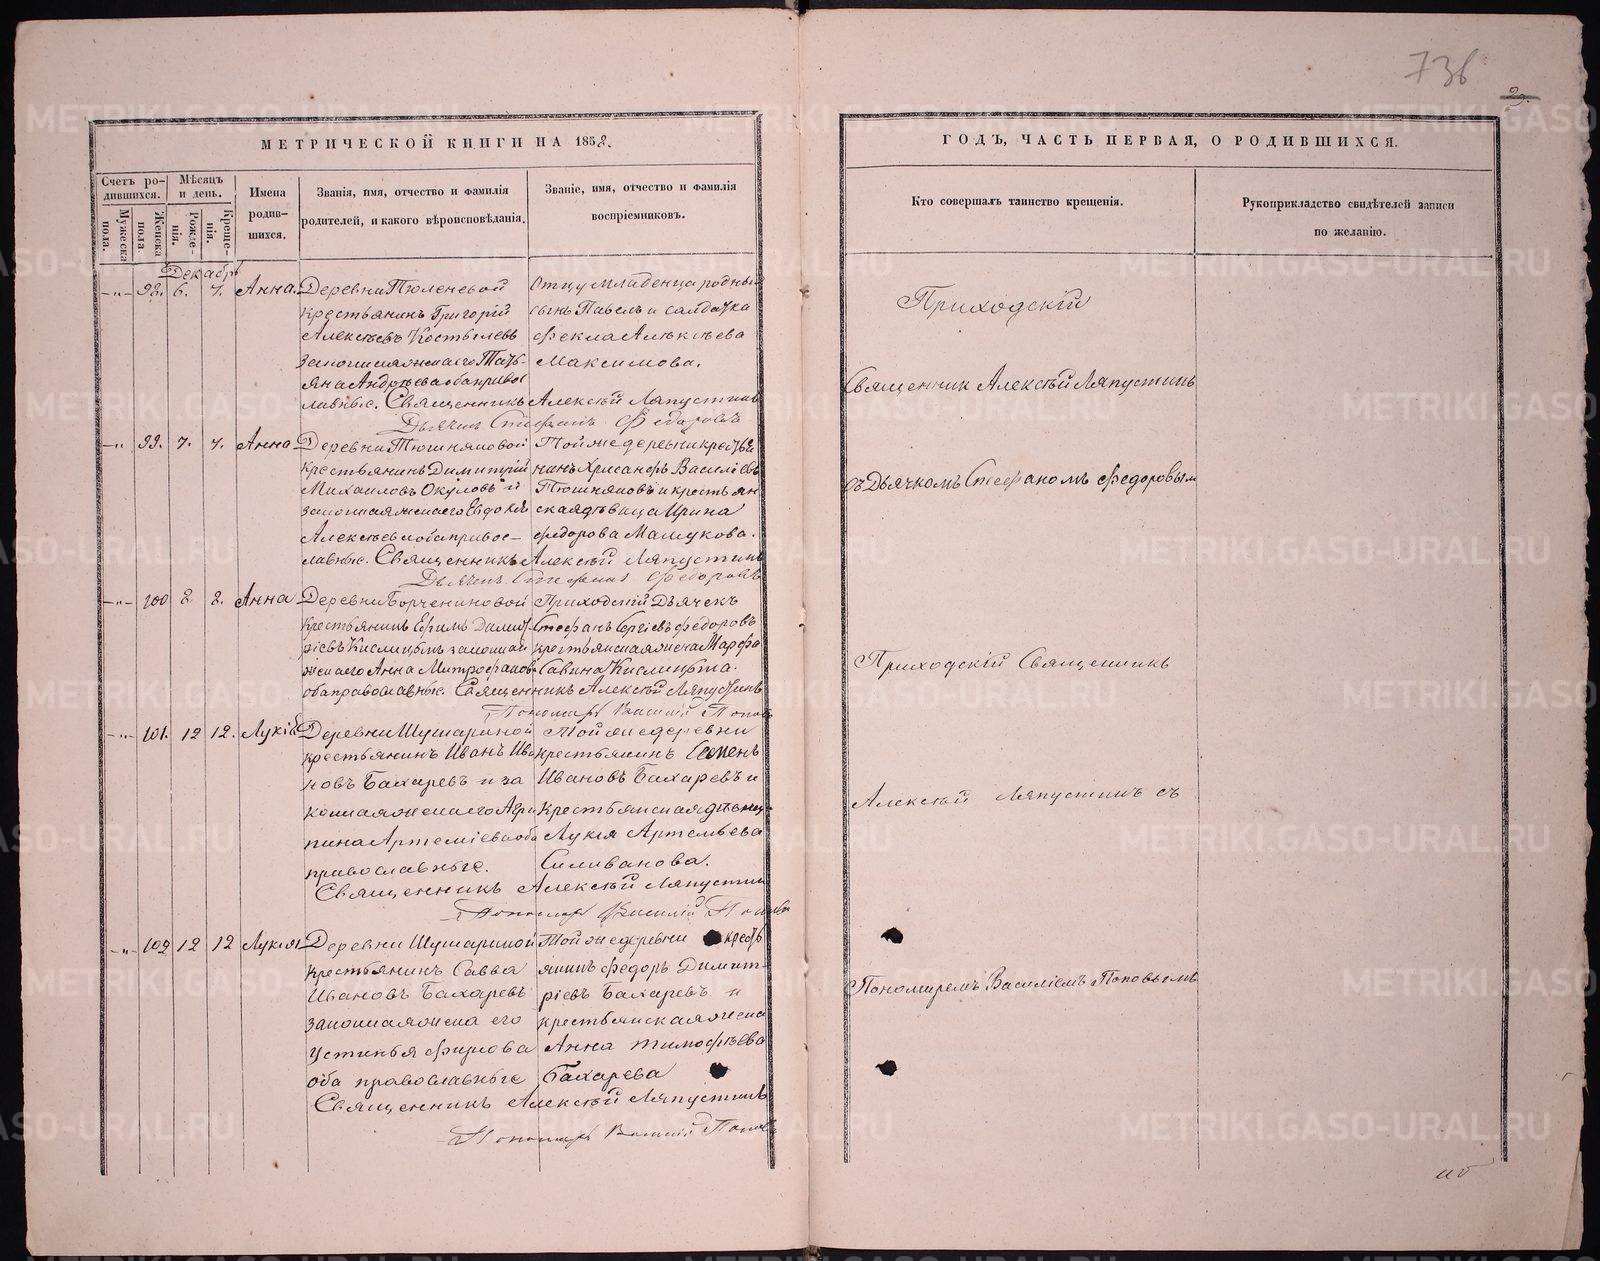 736
29.
МЕТРИЧЕСКОЙ КНИГИ НА 1858.
ГОДЪ, ЧАСТЬ ПЕРВАЯ, О РОДИВШИХСЯ.
Счетъ родившихся.
Мужеска пола.
Женска пола
Мѣсяцъ и день.
Рожденія.
Крещенія.
Имена родившихся.
Званія, имя, отчество и фамилія
родителей, и какого вѣроисповѣданія.
Званіе, имя, отчество и фамилія
воспріемниковъ.
Кто совершалъ таинство крещенія.
Рукоприкладство свидѣтелей записи
по желанію.
Декабрь
98. 6. 7. Анна.
Деревни Тюленевой
крестьянинъ Григорій
Алексѣевъ Костылевъ
законная жена его Тать-
яна Андреева оба право
славные.
Отцу младенца родный
сынъ Павелъ и салдатка
Фекла Алексѣева
Максимова.
Священникъ Алексѣй Ляпустинъ
Дьячекъ Стефанъ Федоровъ
99. 7. 7. Анна
Деревни Тюшняковой
крестьянинъ Димитрій
Михаиловъ Окуловъ и
законная жена его Евдокія
Алексѣева оба правос-
лавные.
Той же деревни кресть
нинъ Хрисанфъ Василіевъ
Тюшняковъ и крестьян
ская дѣвица Ирина
Федорова Мамукова.
Священникъ Алексѣй Ляпустинъ
Дьячекъ Стефанъ Федоровъ
100 8. 8. Анна
Деревни Борчениновой
крестьянинъ Ефимъ Димит
ріевъ Кислицынъ законная
жена его Анна Митрофанова
оба православные.
Приходскій Дьячекъ
Стефанъ Сергіевъ Федоровъ
крестьянская жена Марфа
Савина Кислицына.
Священникъ Алексѣй Ляпустинъ
Пономарь Василій Поповъ
101. 12 12. Лукія
Деревни Шушариной
крестьянинъ Иванъ Ива
новъ Бахаревъ и за
конная жена его Агри
пина Артеміева оба
православные.
Той же деревни
крестьянинъ Семенъ
Ивановъ Бахаревъ и
крестьянская дѣвица
Лукія Артемьева
Силиванова.
Священникъ Алексѣй Ляпустинъ
Пономарь Василій Поповъ
102 12 12 Лукія
Деревни Шушариной
крестьянинъ Савва
Ивановъ Бахаревъ
законная жена его
Устинья Фирсова
оба православные
Той же деревни крестъ
янинъ Федоръ Димит-
ріевъ Бахаревъ и
крестьянская жена
Анна Тимофѣева
Бахарева
Священникъ Алексѣй Ляпустинъ
Пономарь Василій Поповъ
Приходскій
Священник Алексѣй Ляпустинъ
съ Дьячкомъ Стефаномъ Федоровым
Приходскій Священникъ
Алексѣй Ляпустинъ съ
Пономаремъ Василіемъ Поповымъ
METRIKI.GASO-URAL.RU